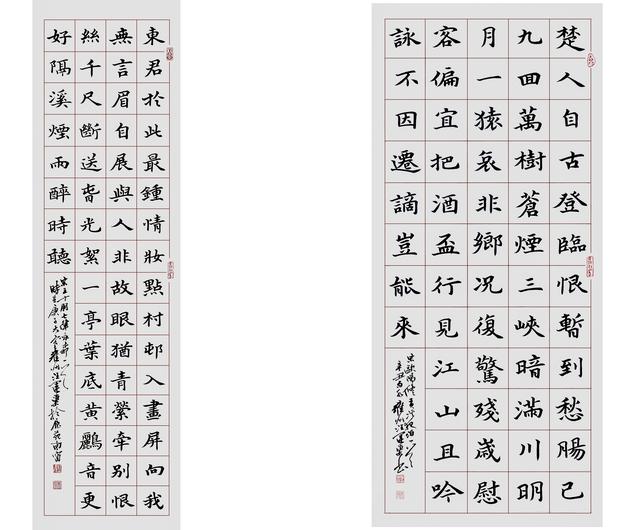 東君於此最鍾情妝點村邨入畫屏向我
無言眉自展與人非故眼猶青縈牽別恨
絲千尺斷送旾光絮一亭葉底黃鸝音更
好隔溪煙雨醉時聽
楚人自古登臨恨暫到愁腸已
九回萬樹蒼煙三峽暗滿川明
月一猿哀非鄉况復驚殘歲慰
客偏宜把酒盃行見江山且吟
詠不因遷謫豈能來